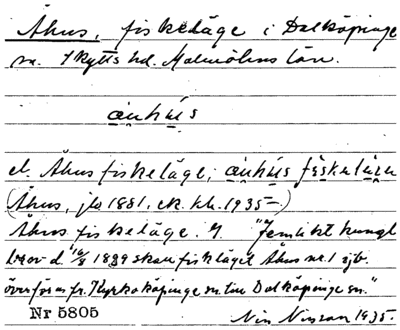 Åhus, fiskeläge i Dalköpinge
sn. Skytts hd. Malmöhus län.
åuhús
el. Åhus fiskeläge; åuhús
(Åhus, jb 1881, ek. kb. 1935 –)
Åhus fiskeläge. "Jemlikt kungl
brev d. 16/8 1889 skall fiskläget Åhus nr. 1
överföras fr. Kyrkoköpinge sn till Dalköpinge sn."
Nr 5805
Nils Nilsson 1935.